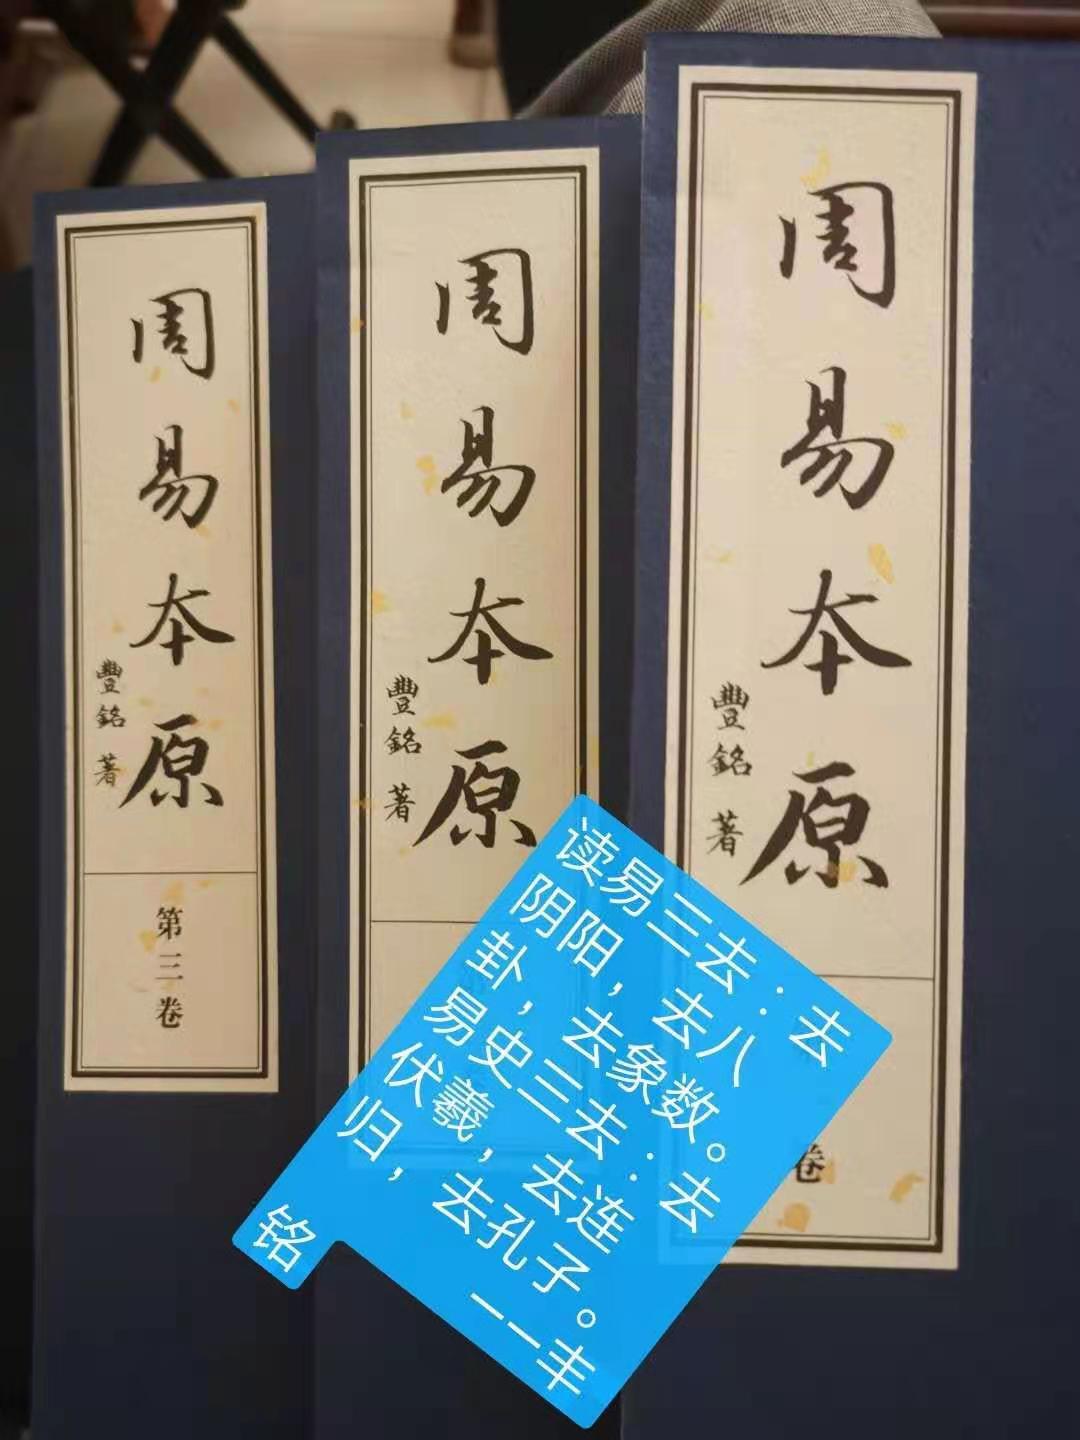 周易本原
豐銘 著
第三卷
周易本原
豐銘 著
周易本原
豐銘 著
卷
读易三去：去
阴阳，去八
卦，去象数。
易史三去：去
伏羲，去连
归，去孔子。
——丰
铭